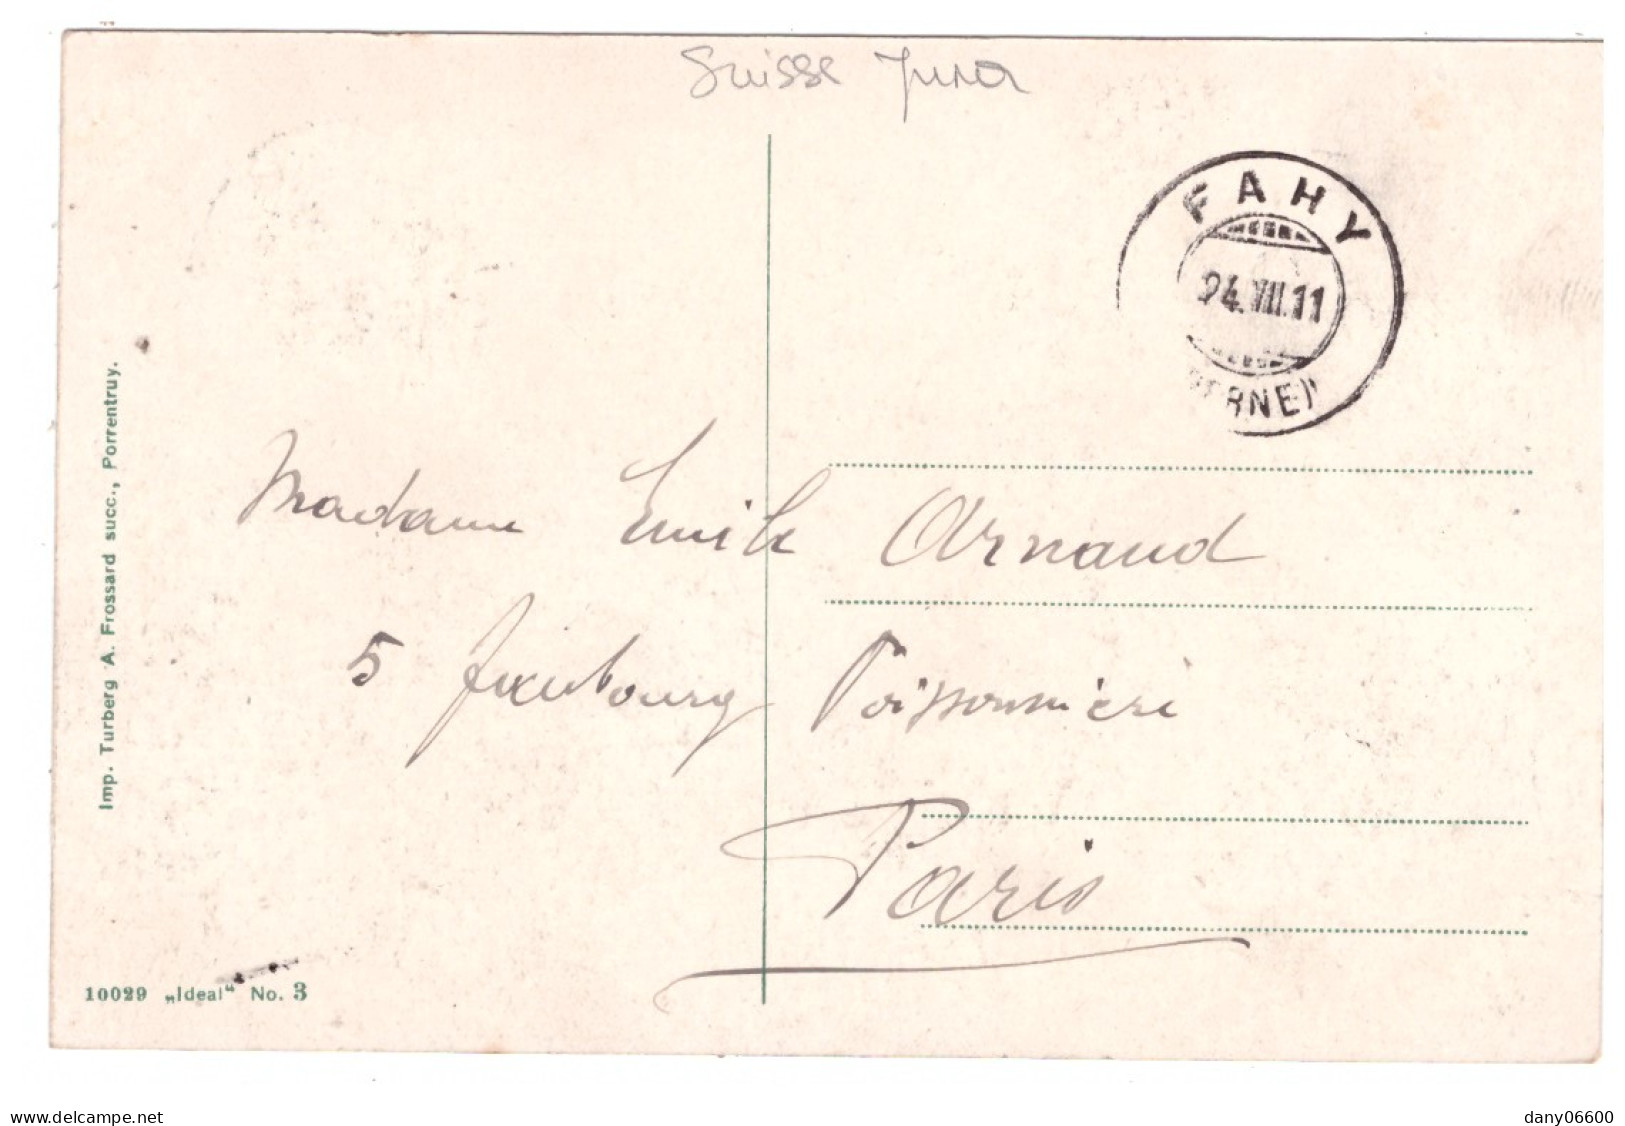 Suisse Jura
FAHY
24.VIII.11
(BERNE)
Imp. Turberg A. Frossard succ., Porrentruy.
Madame Emile Arnaud
5 faubourg Poissonnière
Paris
10029 „Ideal“ No. 3
www.delcampe.net
dany06600